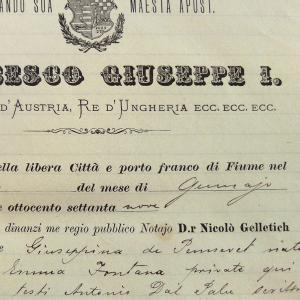 ANDO SUA MAESTÀ APOST.
CESCO GIUSEPPE I.
D'AUSTRIA, RE D'UNGHERIA ECC. ECC. ECC.
ella libera Città e porto franco di Fiume nel
del mese di Gennajo
e ottocento settanta nove
dinanzi me regio pubblico Notajo D.r Nicolò Gelletich
e Giuseppina de
Emma Fontana private qui
testi Antonio Dal